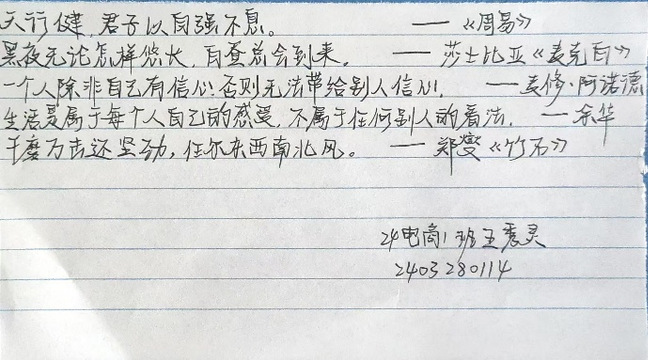 天行健，君子以自强不息。 ——《周易》
黑夜无论怎样悠长，白昼总会到来。 ——莎士比亚《麦克白》
一个人除非自己有信心，否则无法带给别人信心。 ——麦修·阿诺德
生活是属于每个人自己的感受，不属于任何别人的看法。 ——余华
千磨万击还坚劲，任尔东西南北风。 ——郑燮《竹石》
24电商1班王秀灵
2403280114